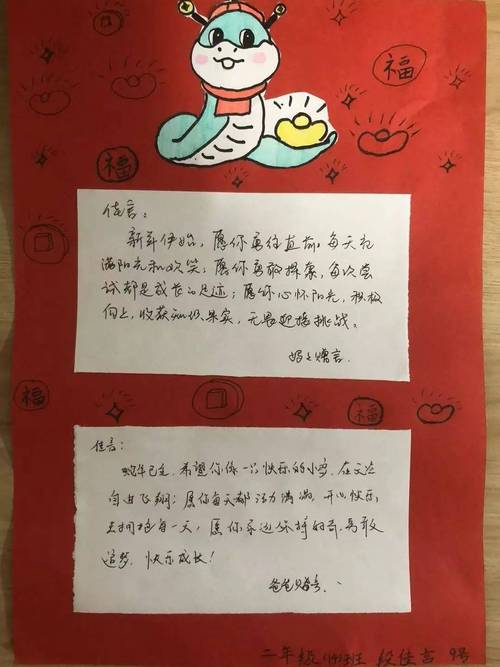 福
福
佳言：
新年伊始，愿你勇往直前，每天充
满阳光和欢笑；愿你勇敢探索，每次尝
试都是成长的足迹；愿你心怀阳光，积极
向上，收获知识果实，无畏迎接挑战。
妈妈赠言
福
福
佳言：
蛇年已至，希望你像一只快乐的小鸟，在天空
自由飞翔；愿你每天都活力满满，开心快乐，
去拥抱每一天，愿你永远保持好奇，勇敢
追梦，快乐成长！
爸爸赠言
二年级 班 段佳言 9号